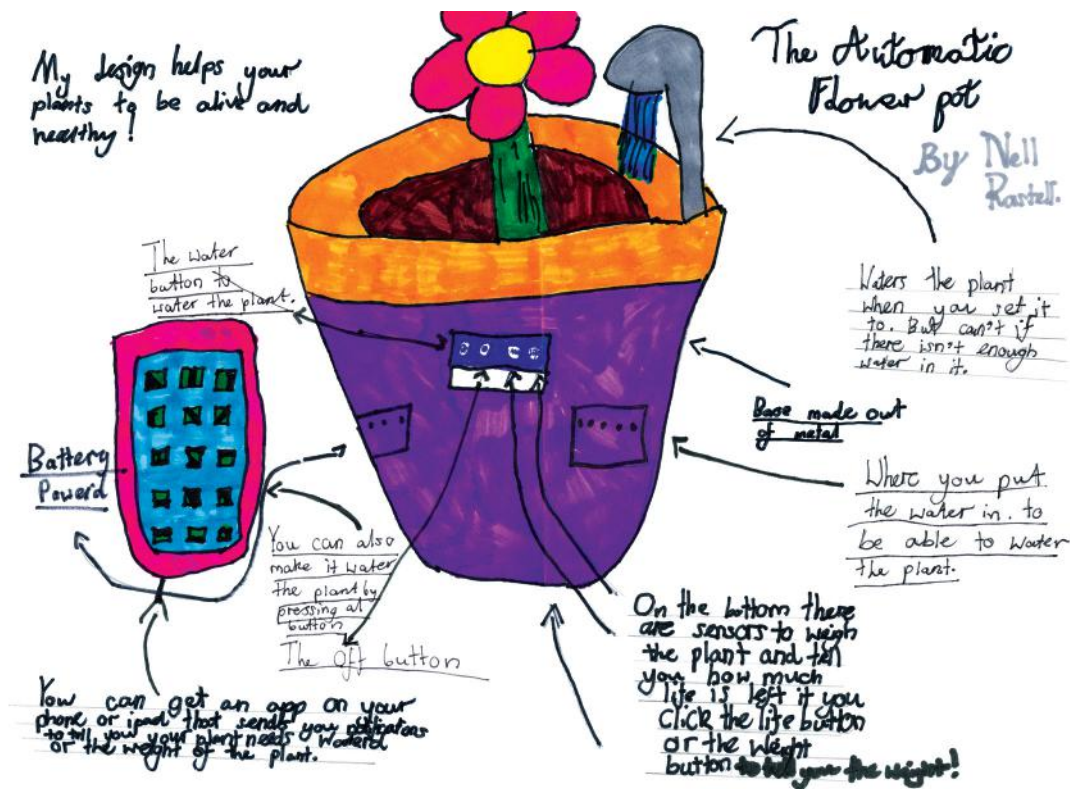 My design helps your
plants to be alive and
healthy!
The Automatic
Flower pot
By Nell
Rastell.
The water
button to
water the plant.
Waters the plant
when you set it
to. But can't if
there isn't enough
water in it.
Base made out
of metal
Battery
Powerd
Where you put
the water in. to
be able to water
the plant.
You can also
make it water
the plant by
pressing at
button
The off button
On the bottom there
are sensors to weigh
the plant and tell
you how much
life is left it you
click the life button
or the weight
button to tell you the weight!
You can get an app on your
phone or ipad that sends you notifications
to tell you your plant needs waterd
or the weight of the plant.